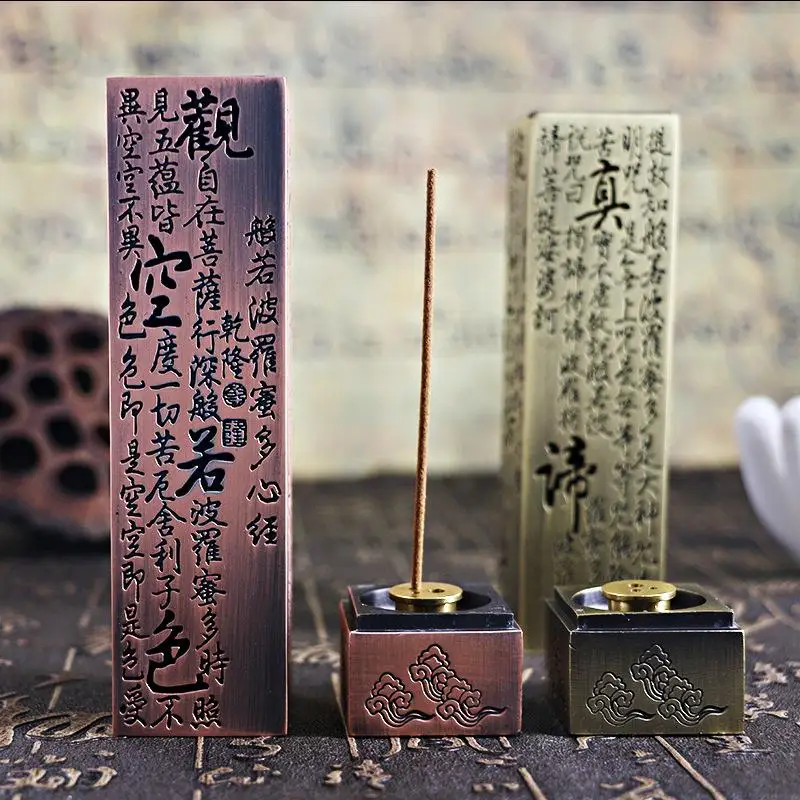 般若波羅蜜多心經
乾隆
觀自在菩薩行深般若波羅蜜多時照
見五蘊皆空度一切苦厄舍利子色不
異空空不異色色即是空空即是色受
提故知般若波羅蜜多是大神
明咒是無上咒是無等等咒能除
苦真實不虛故說般若波羅
說咒曰揭諦揭諦波羅揭諦
諦菩提娑婆訶